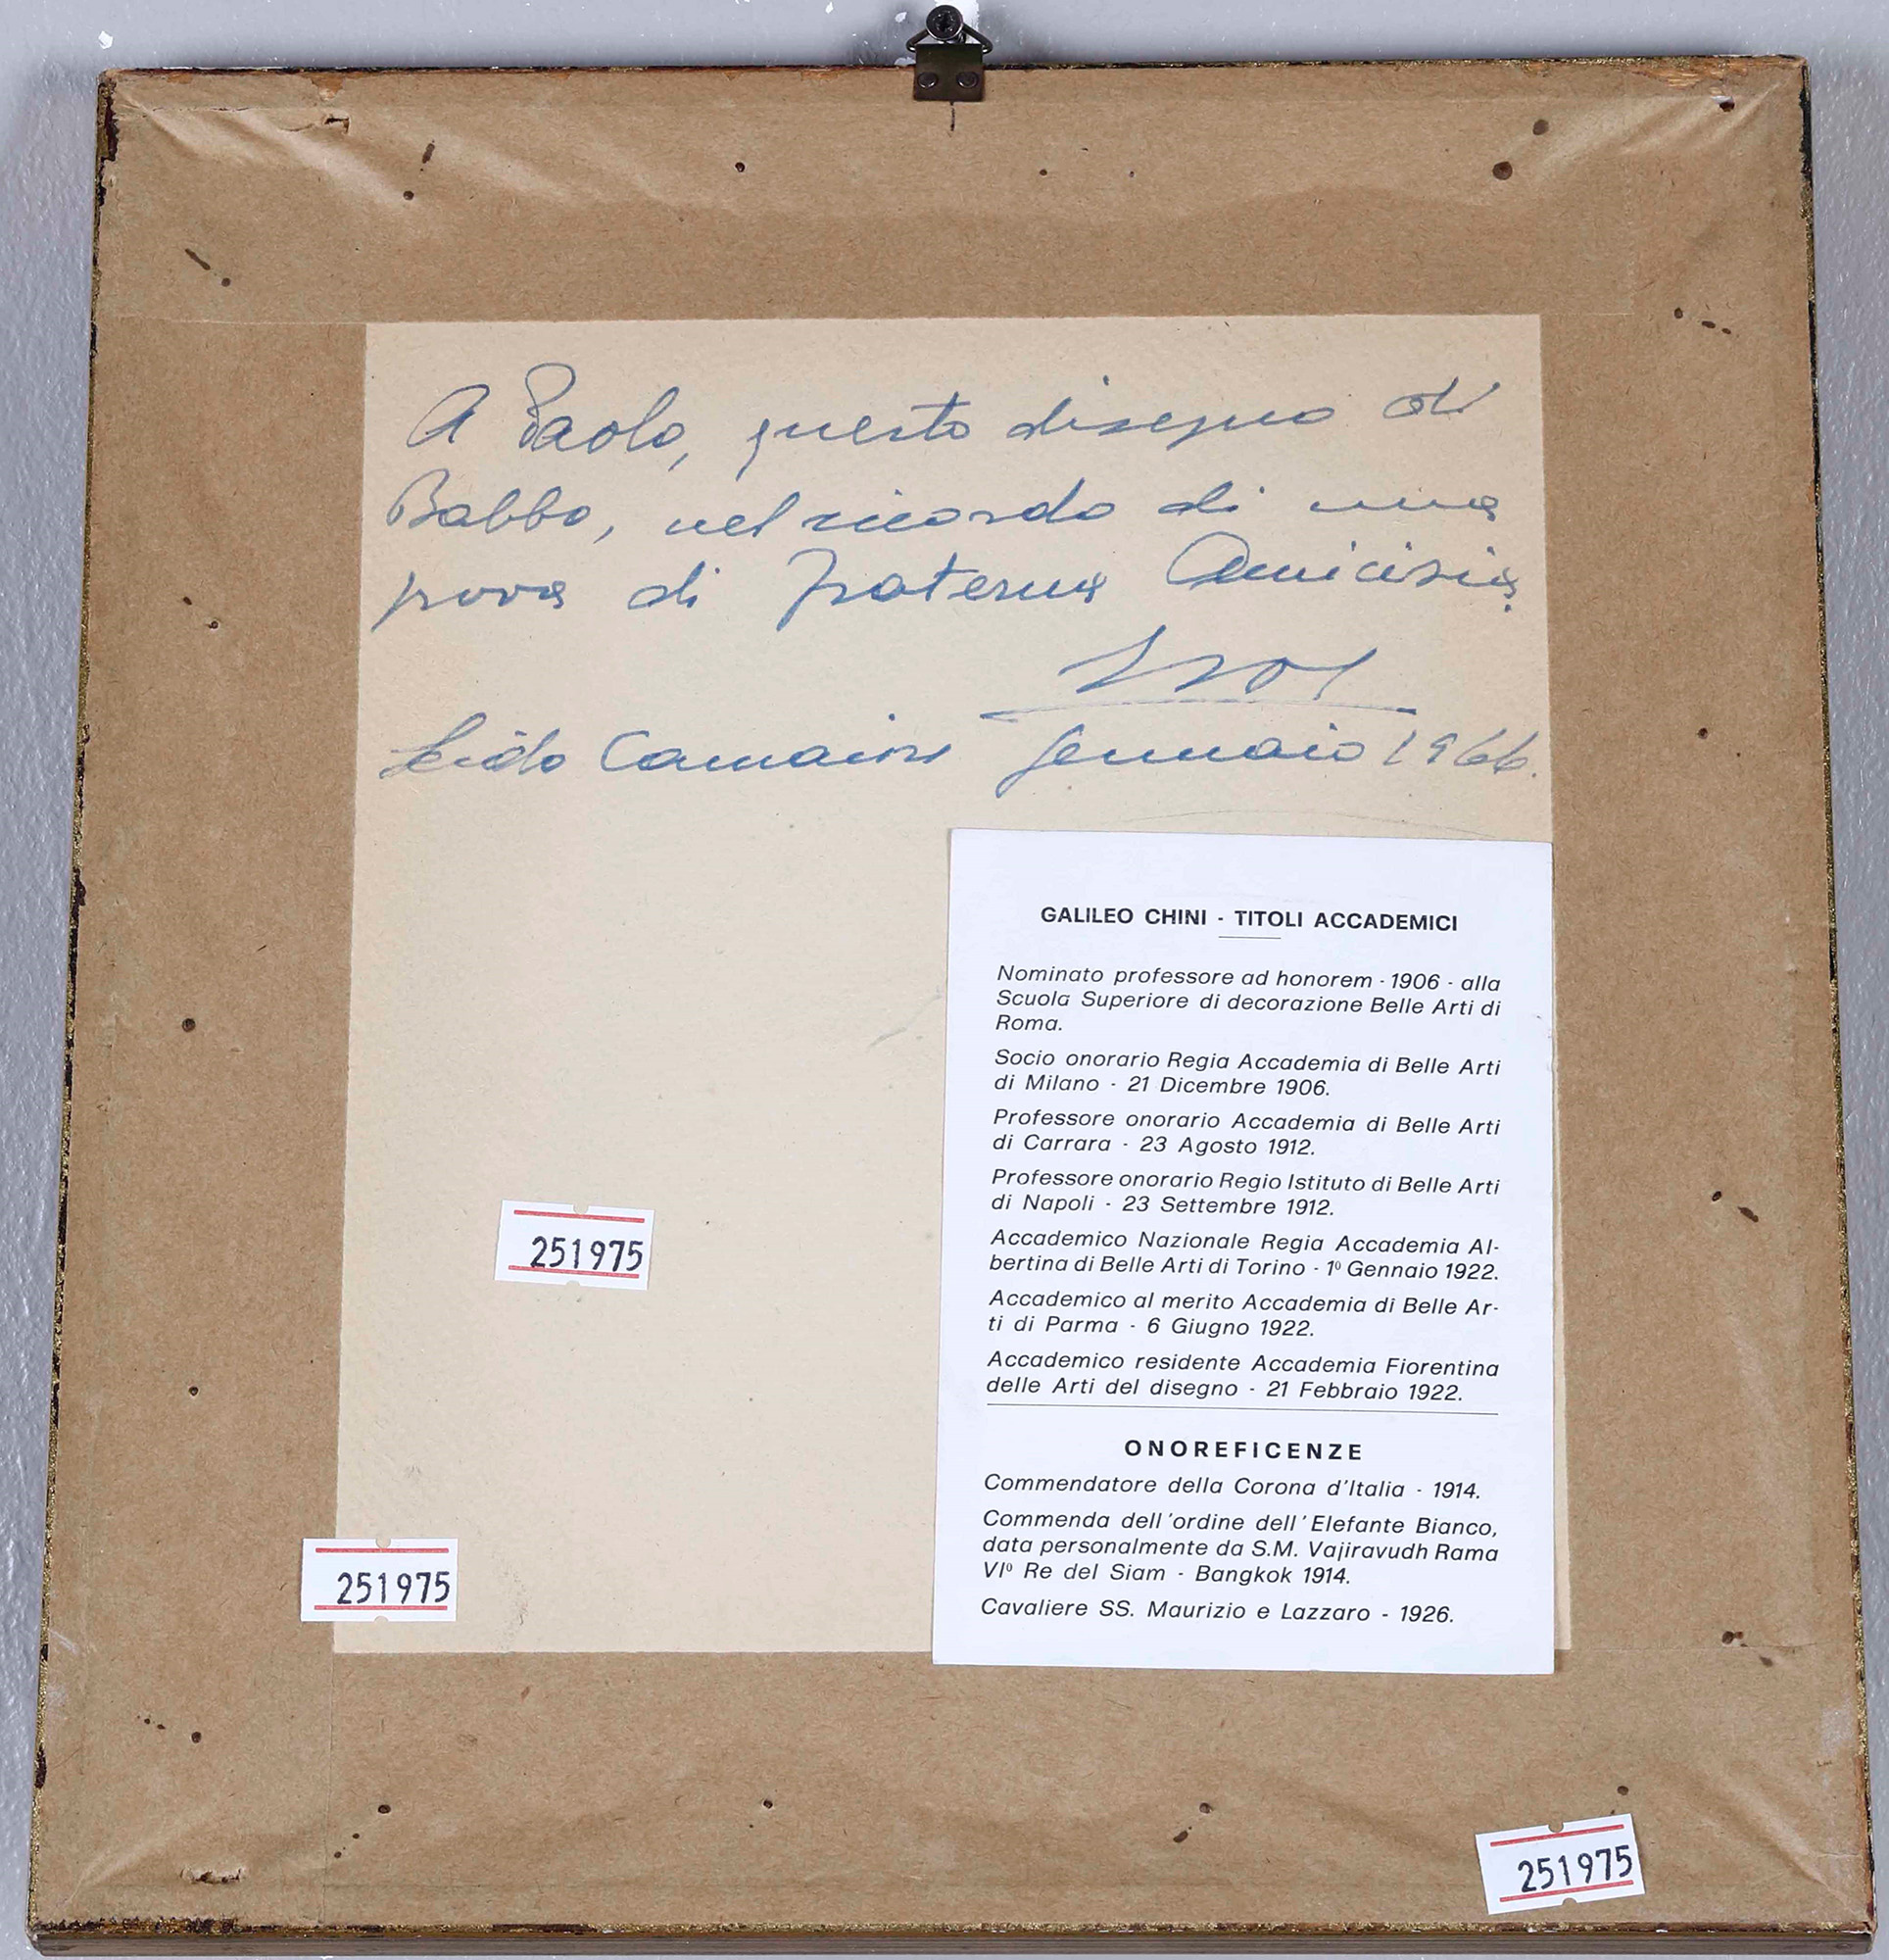 A Paolo, questo disegno di
Babbo, nel ricordo di una
prova di fraterna Amicizia,
Lido Camaiore Gennaio 1966.
GALILEO CHINI - TITOLI ACCADEMICI
Nominato professore ad honorem - 1906 - alla
Scuola Superiore di decorazione Belle Arti di
Roma.
Socio onorario Regia Accademia di Belle Arti
di Milano - 21 Dicembre 1906.
Professore onorario Accademia di Belle Arti
di Carrara - 23 Agosto 1912.
Professore onorario Regio Istituto di Belle Arti
di Napoli - 23 Settembre 1912.
Accademico Nazionale Regia Accademia Al-
bertina di Belle Arti di Torino - 1º Gennaio 1922.
Accademico al merito Accademia di Belle Ar-
ti di Parma - 6 Giugno 1922.
Accademico residente Accademia Fiorentina
delle Arti del disegno - 21 Febbraio 1922.
ONOREFICENZE
Commendatore della Corona d'Italia - 1914.
Commenda dell'ordine dell'Elefante Bianco,
data personalmente da S.M. Vajiravudh Rama
VIº Re del Siam - Bangkok 1914.
Cavaliere SS. Maurizio e Lazzaro - 1926.
251975
251975
251975